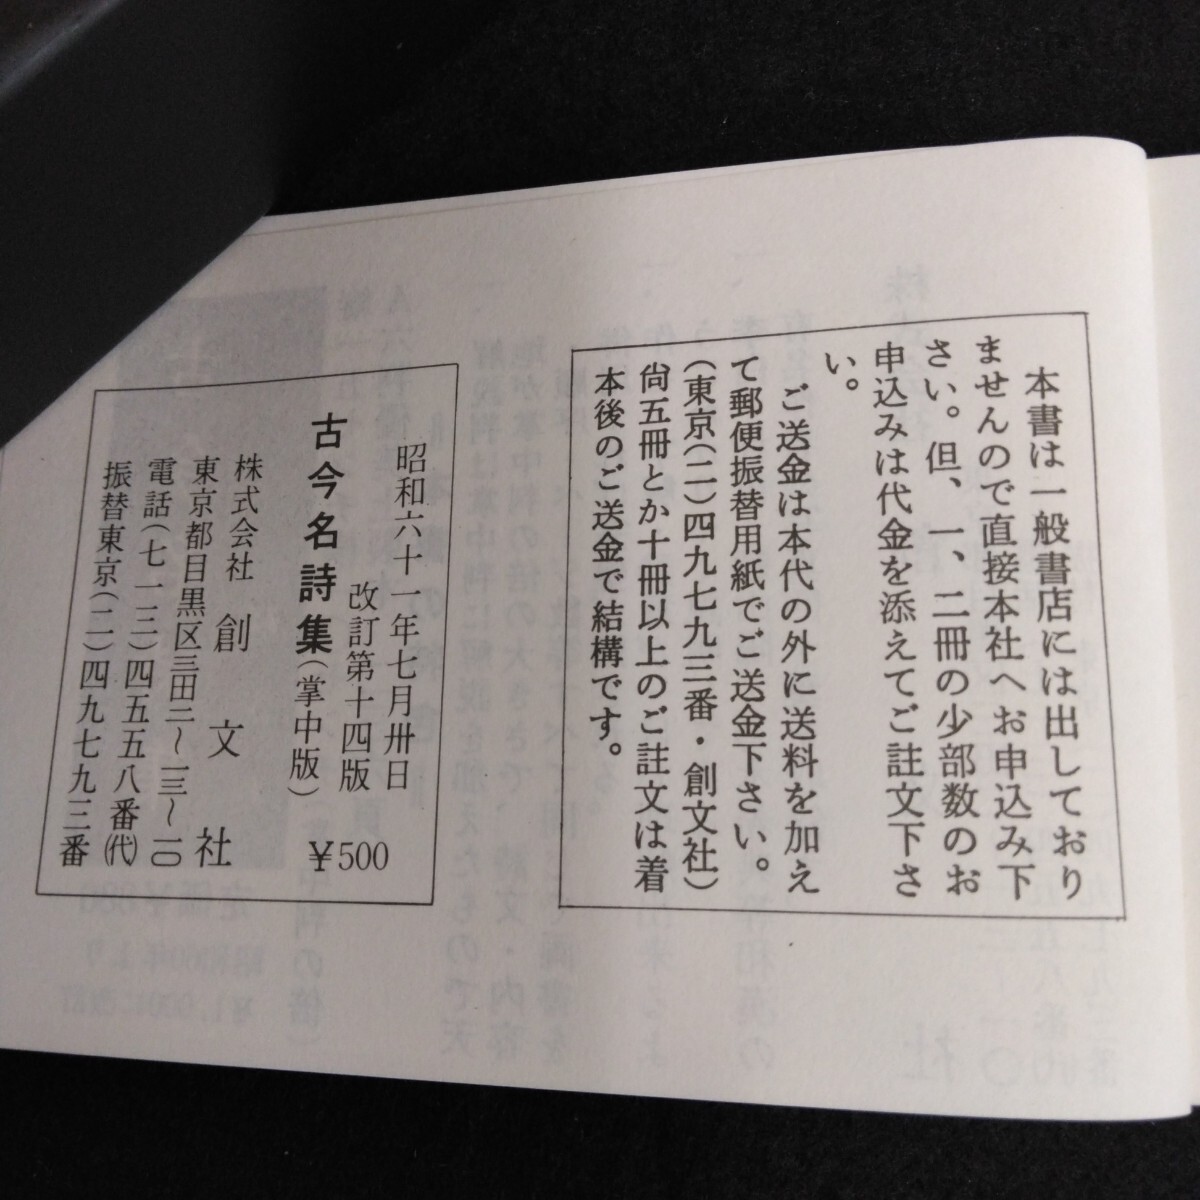 本書は一般書店には出しており
ませんので直接本社へお申込み下
さい。但、一、二冊の少部数のお
申込みは代金を添えてご註文下さ
い。
ご送金は本代の外に送料を加え
て郵便振替用紙でご送金下さい。
(東京(二)四九七九三番・創文社)
尙五冊とか十冊以上のご註文は着
本後のご送金で結構です。
昭和六十一年七月卅日
改訂第十四版
¥500
古今名詩集(掌中版)
株式会社 創文社
東京都目黒区三田二〜一三〜一〇
電話(七一三)四五五八番(代)
振替東京(二)四九七九三番